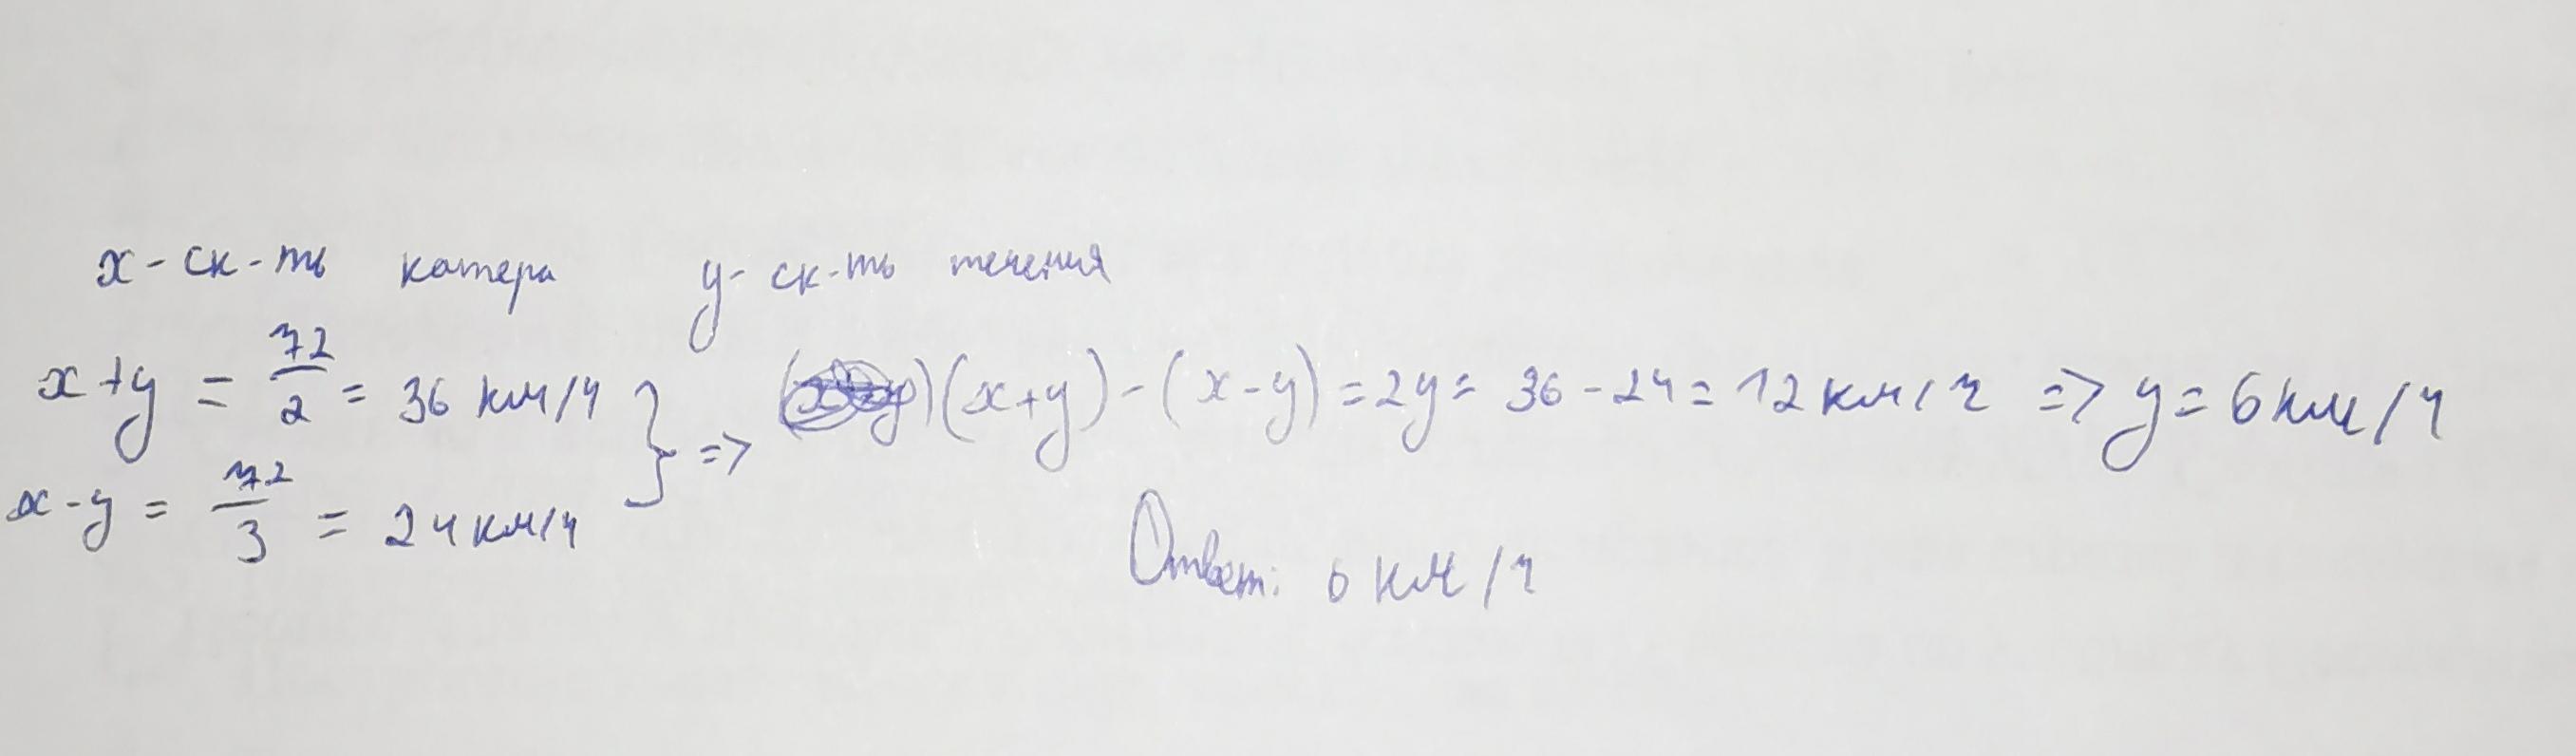 x - ск-ть катера y - ск-ть течения
x + y = 72/2 = 36 км/ч
x - y = 72/3 = 24 км/ч
} => (x+y) - (x-y) = 2y = 36 - 24 = 12 км/ч => y = 6 км/ч
Ответ: 6 км/ч